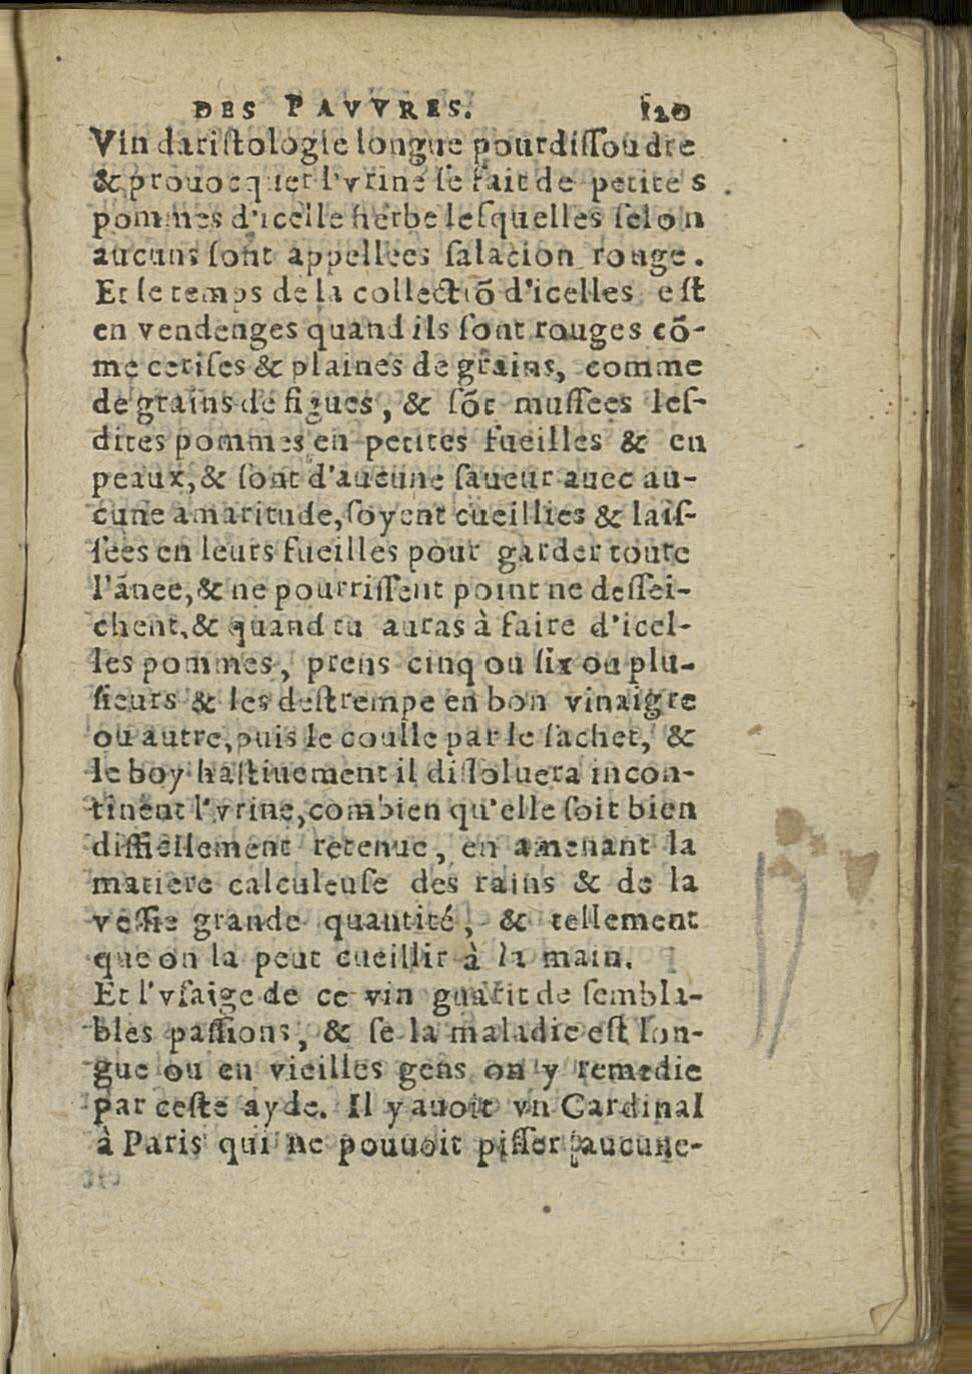 DES PAVVRES. 120
Vin dariſtologie longue pourdiſſoudre
& prouocquer l'vrine ſe fait de petites
pommes d'icelle herbe leſquelles ſelon
aucuns ſont appellees ſalacion rouge.
Et le temps de la collectiõ d'icelles eſt
en vendenges quand ils ſont rouges cõ-
me ceriſes & plaines de grains, comme
de grains de figues, & ſõt muſſees leſ-
dites pommes en petites fueilles & en
peaux, & ſont d'aucune ſaueur auec au-
cune amaritude, ſoyent cueillies & laiſ-
ſees en leurs fueilles pour garder toute
l'ãnee, & ne pourriſſent point ne deſſei-
chent, & quand tu auras à faire d'icel-
les pommes, prens cinq ou ſix ou plu-
ſieurs & les deſtrempe en bon vinaigre
ou autre, puis le coulle par le ſachet, &
le boy haſtiuement il diſſoluera incon-
tinent l'vrine, combien qu'elle ſoit bien
difficilement retenue, en amenant la
matiere calculeuſe des rains & de la
veſſie grande quantité, & tellement
que on la peut cueillir à la main.
Et l'vſaige de ce vin guarit de ſembla-
bles paſſions, & ſe la maladie eſt lon-
gue ou en vieilles gens on y remedie
par ceſte ayde. Il y auoit vn Cardinal
à Paris qui ne pouuoit piſſer aucune-